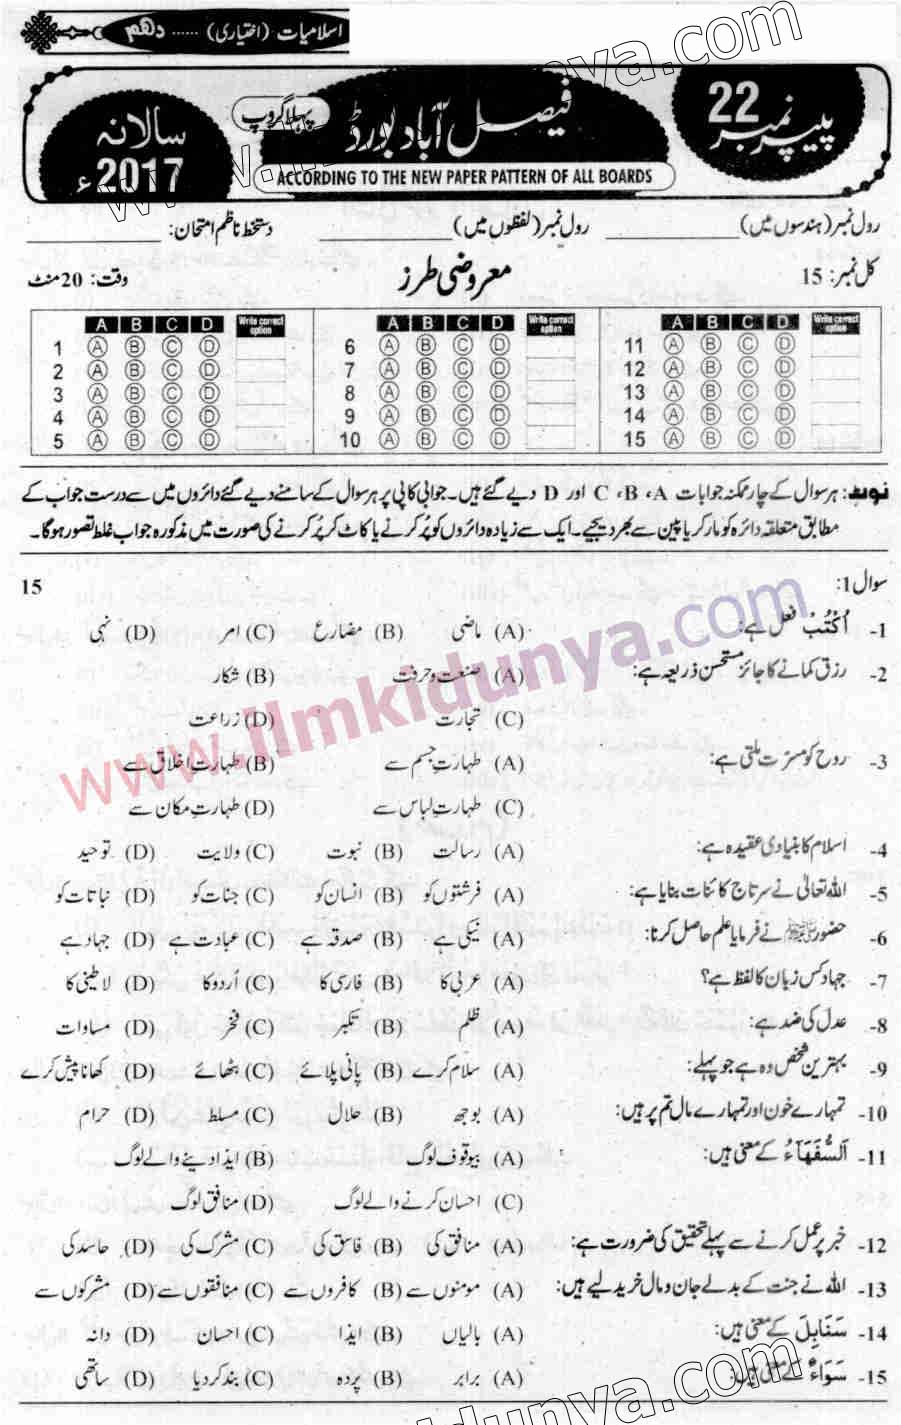 اسلامیات (اختیاری) ...... دھم
پیپر نمبر 22
فیصل آباد بورڈ
پہلا گروپ
سالانہ 2017ء
ACCORDING TO THE NEW PAPER PATTERN OF ALL BOARDS
رول نمبر (ہندسوں میں) ____________ رول نمبر (لفظوں میں) ____________ دستخط ناظم امتحان: ____________
کل نمبر: 15 معروضی طرز وقت: 20 منٹ
A B C D Write correct option A B C D Write correct option A B C D Write correct option
1 A B C D 6 A B C D 11 A B C D
2 A B C D 7 A B C D 12 A B C D
3 A B C D 8 A B C D 13 A B C D
4 A B C D 9 A B C D 14 A B C D
5 A B C D 10 A B C D 15 A B C D
نوٹ: ہر سوال کے چار ممکنہ جوابات A، B، C اور D دیے گئے ہیں۔ جوابی کاپی پر ہر سوال کے سامنے دیے گئے دائروں میں سے درست جواب کے
مطابق متعلقہ دائرہ کو مارکر یا پین سے بھر دیجیے۔ ایک سے زیادہ دائروں کو پُر کرنے یا کاٹ کر پُر کرنے کی صورت میں مذکورہ جواب غلط تصور ہوگا۔
سوال 1: 15
1- اُكْتُبْ فعل ہے: (A) ماضی (B) مضارع (C) امر (D) نہی
2- رزق کمانے کا جائز مستحسن ذریعہ ہے: (A) صنعت و حرفت (B) شکار
(C) تجارت (D) زراعت
3- روح کو مسرت ملتی ہے: (A) طہارتِ جسم سے (B) طہارتِ اخلاق سے
(C) طہارتِ لباس سے (D) طہارتِ مکان سے
4- اسلام کا بنیادی عقیدہ ہے: (A) رسالت (B) نبوت (C) ولایت (D) توحید
5- اللہ تعالیٰ نے سرتاج کائنات بنایا ہے: (A) فرشتوں کو (B) انسان کو (C) جنات کو (D) نباتات کو
6- حضور ﷺ نے فرمایا علم حاصل کرنا: (A) نیکی ہے (B) صدقہ ہے (C) عبادت ہے (D) جہاد ہے
7- جہاد کس زبان کا لفظ ہے؟ (A) عربی کا (B) فارسی کا (C) اُردو کا (D) لاطینی کا
8- عدل کی ضد ہے: (A) ظلم (B) تکبر (C) فخر (D) مساوات
9- بہترین شخص وہ ہے جو پہلے: (A) سلام کرے (B) پانی پلائے (C) بٹھائے (D) کھانا پیش کرے
10- تمہارے خون اور تمہارے مال تم پر ہیں: (A) بوجھ (B) حلال (C) مسلط (D) حرام
11- اَلسُّفَهَآءُ کے معنی ہیں: (A) بیوقوف لوگ (B) ایذا دینے والے لوگ
(C) احسان کرنے والے لوگ (D) منافق لوگ
12- خبر پر عمل کرنے سے پہلے تحقیق کی ضرورت ہے: (A) منافق کی (B) فاسق کی (C) مشرک کی (D) حاسد کی
13- اللہ نے جنت کے بدلے جان و مال خرید لیے ہیں: (A) مومنوں سے (B) کافروں سے (C) منافقوں سے (D) مشرکوں سے
14- سَنَابِلَ کے معنی ہیں: (A) بالیاں (B) ایذا (C) احسان (D) دانہ
15- سَوَآءٌ کے معنی ہیں: (A) برابر (B) پردہ (C) بند کر دیا (D) ساتھی
www.ilmkidunya.com